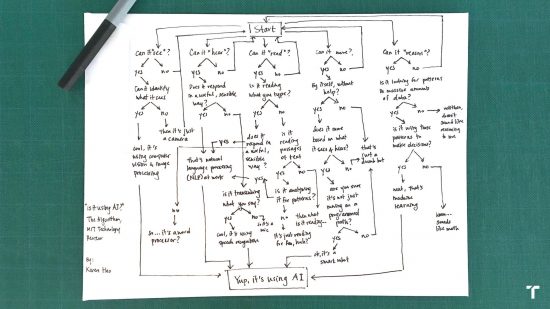 Start
Can it "see"?
yes
no
Can it identify
what it sees
yes
no
then it's just
a camera
cool, it's
using computer
vision & image
processing
Can it "hear"?
yes
no
Does it respond
in a useful, sensible
way?
yes
no
that's natural
language processing
(NLP) at work
is it transcribing
what you say?
yes
no
cool, it's using
speech recognition
it's a
mic
Can it "read"?
yes
no
Is it reading
what you type?
yes
no
does it
respond in
a useful,
sensible
way?
yes
no
so... it's a word
processor?
is it
reading
passages
of text
yes
no
is it analyzing
it for patterns?
yes
no
then what
is it reading...
it's just reading
for fun, huh?
Can it move?
yes
no
By itself, without
help?
yes
no
does it move
based on what
it sees & hears?
yes
no
that's
just a
dumb bot
are you sure
it's not just
moving on a
preprogrammed
path?
yes
no
ok, it's a
smart robot
Can it "reason"?
yes
no
is it looking for patterns
in massive amounts
of data?
yes
no
doesn't
sound like
reasoning
to me
is it using those
patterns to
make decisions?
yes
no
neat, that's
machine
learning
hmm...
sounds
like math
Yup, it's using AI
"Is it using AI?"
The Algorithm,
MIT Technology
Review
By:
Karen Hao